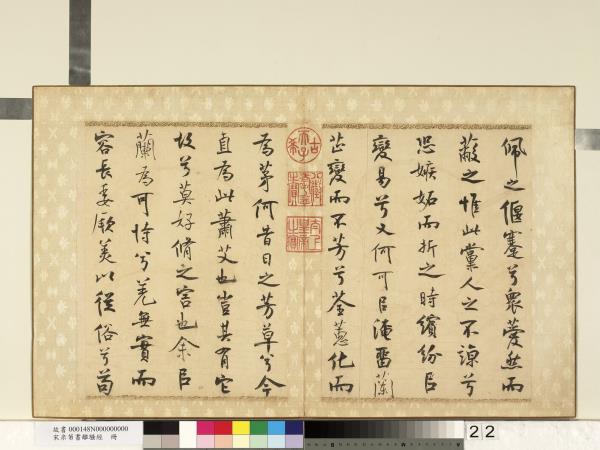 佩之偃蹇兮衆薆然而
蔽之惟此黨人之不諒兮
恐嫉妬而折之時繽紛㠯
變易兮又何可㠯淹留蘭
芷變而不芳兮荃蕙化而
為茅何昔日之芳草兮今
直為此蕭艾也豈其有它
故兮莫好脩之害也余㠯
蘭為可恃兮羌無實而
容長委厥美以從俗兮苟
古稀天子
八徵耄念之寶
太上皇帝之寶
故書 000148N000000000
宋米芾書離騷經 冊
22